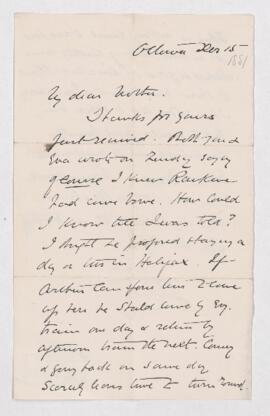 Ottawa Dec 15
1881
My dear Mother.
Thanks for yours
just received. Both you &
Eva wrote on Sunday saying
of course I knew
had come home. How could
I know till I was told?
I thought he proposed staying a
day or two in Halifax. If
Arthur
up here he should come by Exp.
train one day & return by
afternoon train the next. Coming
& going back on same day
Scarcely leaves time to turn round.